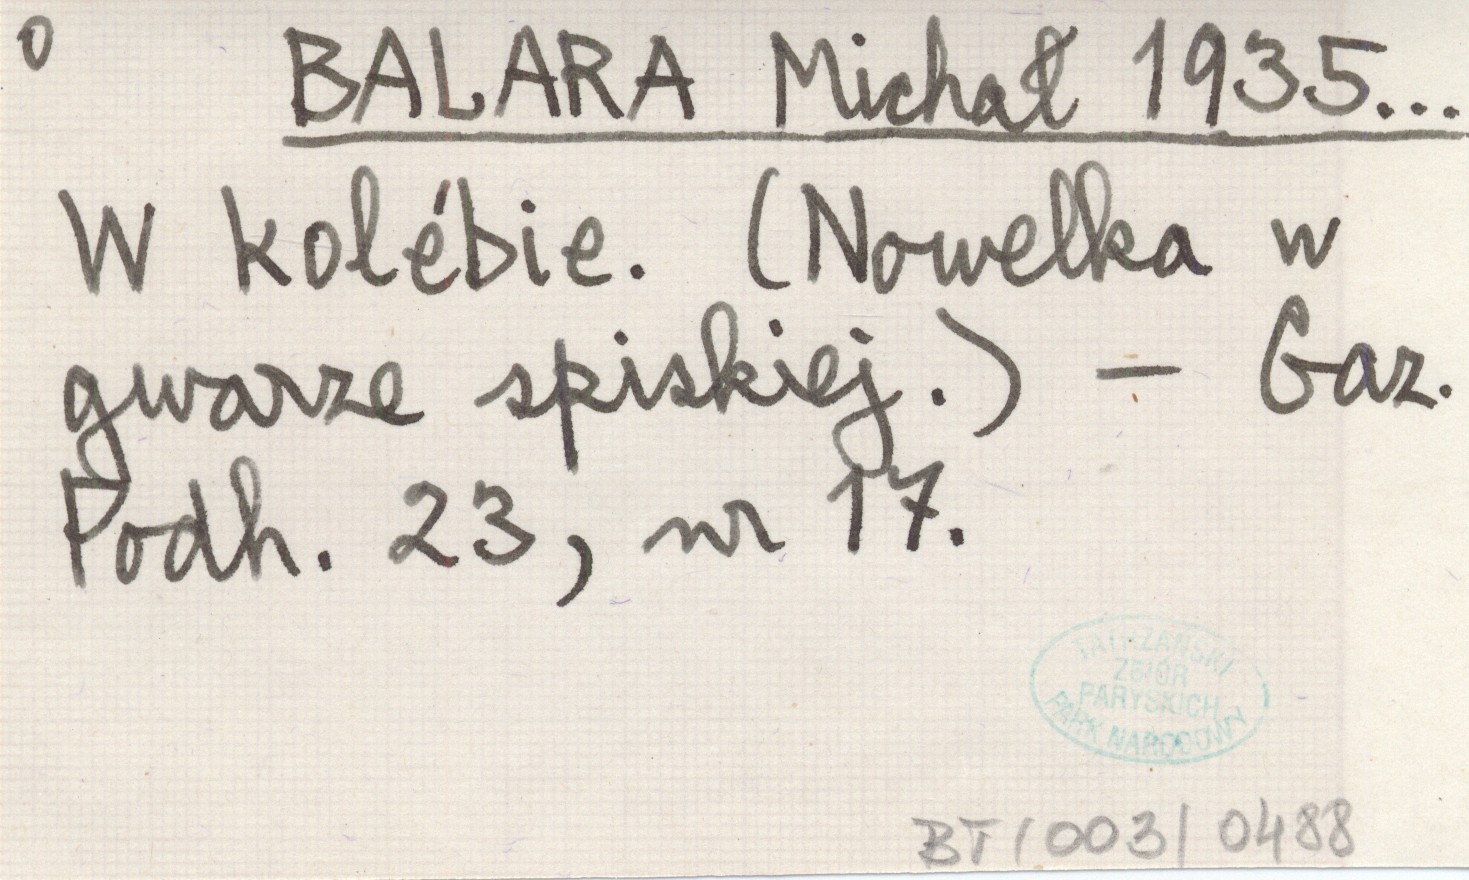 o BALARA Michał 1935...
W kolébie. (Nowelka w
gwarze spiskiej.) – Gaz.
Podh. 23, nr 17.
TATRZAŃSKI
ZBIÓR
PARYSKICH
PARK NARODOWY
BT/003/0488